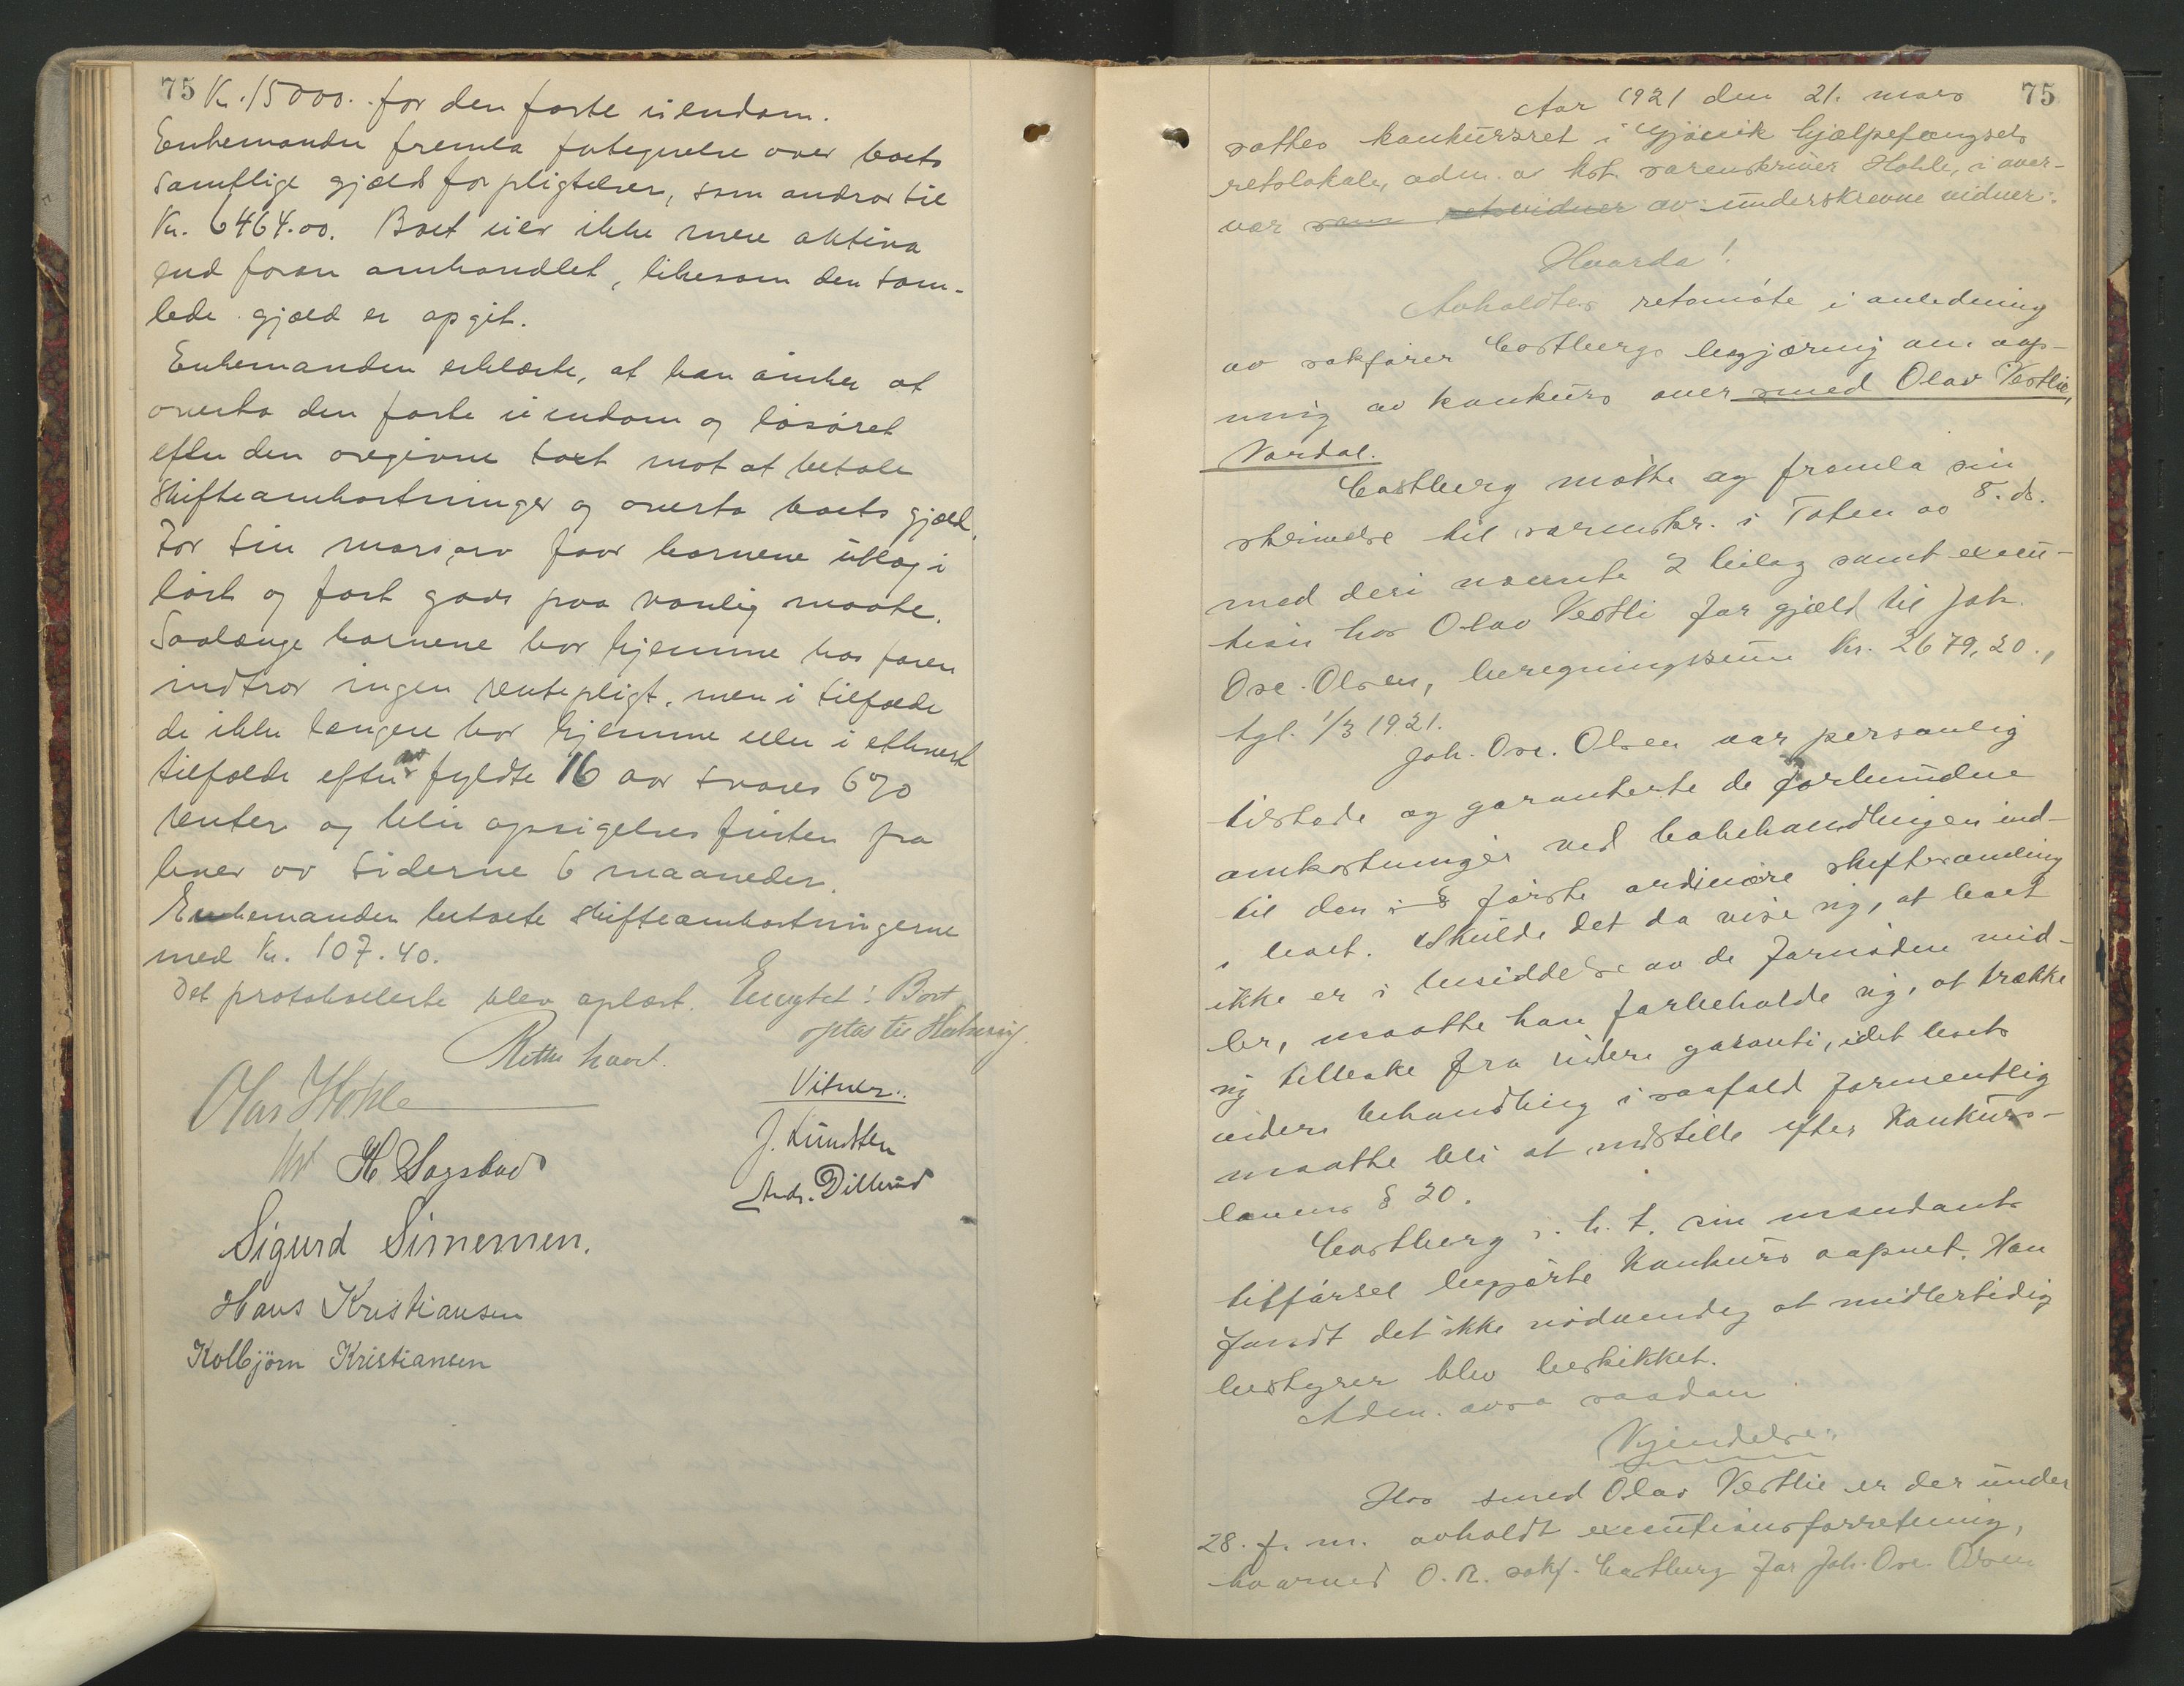 75 Kr. 15000.- for den faste eiendom.
Enkemanden fremla fortegnelse over boets
samtlige gjældsforpligtelser, som andrar til
Kr. 6464.00. Boet eier ikke mere aktiva
end foran omhandlet, likesom den sam-
lede gjæld er opgit.
Enkemanden erklærte, at han ønsker at
overta den faste eiendom og løsøret
efter den avgivne takst mot at betale
skifteomkostninger og overta boets gjæld.
For sin morsarv faar barnene utlæg i
løst og fast gods paa vanlig maate.
Saalænge barnene bor hjemme hos faren
indtrær ingen rentepligt, men i tilfælde
de ikke længere bor hjemme eller i ethvert
tilfælde efter fyldte 16 aar svares 6%
renter og blir opsigelsesfristen fra
hver av siderne 6 maaneder.
Enkemanden betalte skifteomkostningerne
med Kr. 107.40.
Det protokollerte blev oplæst. Enugtet! Boet
optas til slutning.
Retten hævet.
Olav Hohle
H. Sogstad
Sigurd Simensen.
Hans Kristiansen
Kolbjørn Kristiansen
Vitner:
J. Knudsen
Andr. Dillerud
75
Aar 1921 den 21. mars
sattes konkursret i Gjøvik hjælpefængsels
retslokale, adm. av kst. sorenskriver Hohle, i over-
vær som retsvidner av underskrevne vidner:
Hvorda!
Avholdtes retsmøte i anledning
av sakfører Castbergs begjæring om aap-
ning av konkurs over smed Olav Vestlie,
Vardal.
Castberg møtte og fremla sin
skrivelse til sorenskr. i Toten av 8. ds.
med deri nævnte 2 bilag samt execu-
tion hos Olav Vestli for gjæld til Joh.
Ove. Olsen, beregningssum kr. 2679,20.,
tgl. 1/3 1921.
Joh. Ove. Olsen var personlig
tilstede og garanterte de forbundne
omkostninger ved bobehandlingen ind-
til den i § første ordinære skiftesamling
i boet. Skulde det da vise sig, at boet
ikke er i besiddelse av de fornødne mid-
ler, maatte han forbeholde sig, at trække
sig tilbake fra videre garanti, idet boets
videre behandling i saafald formentlig
maatte bli at indstille efter konkurs-
lovens § 20.
Castberg i h. t. sin mandants
tilførsel begjærte konkurs aapnet. Han
fandt det ikke nødvendig at midlertidig
bestyrer blev beskikket.
Adm. avsa saadan
Kjendelse:
Hos smed Olav Vestlie er der under
28. f. m. avholdt executionsforretning,
hvorved O. R. sakf. Castberg for Joh. Ove. Olsen